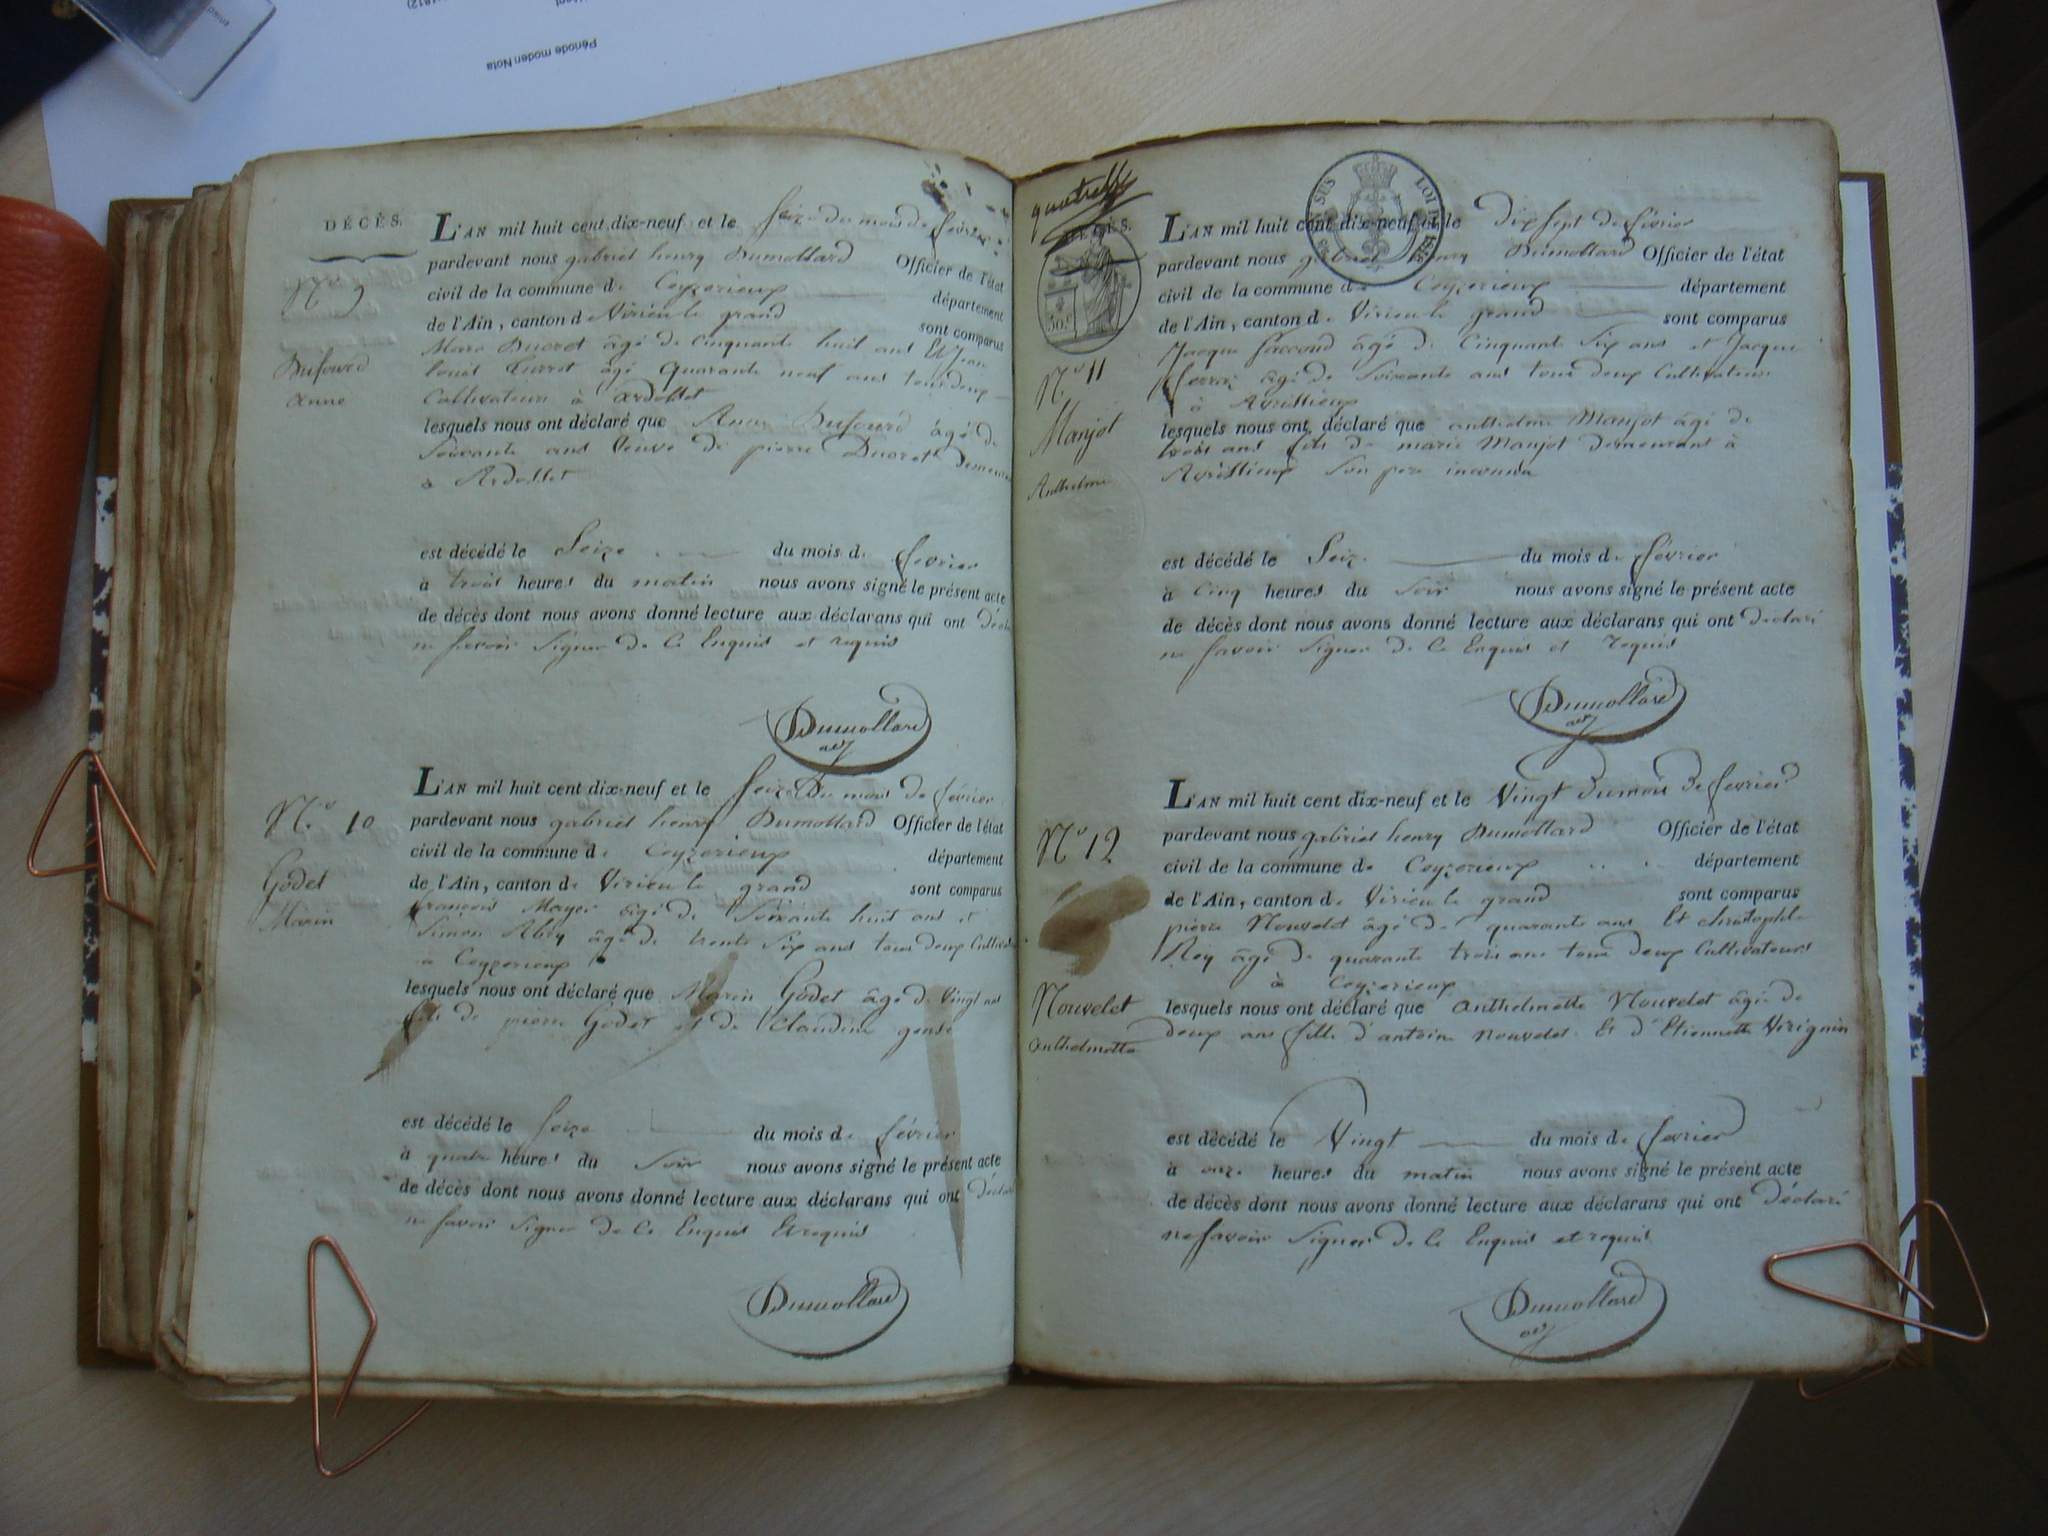 Période moden Nota
DÉCÈS.
L'AN mil huit cent dix-neuf et le Seize du mois de fevrier
pardevant nous gabriel henry Dumollard Officier de l'état
civil de la commune de Ceyzerieux département
de l'Ain, canton de Virieu le grand sont comparus
N.° 9
Marc Ducret âgé de cinquante huit ans Et Jean
Dufourd
louis âgé quarante neuf ans tous deux
anne
Cultivateurs à ardosset
lesquels nous ont déclaré que Anne Dufourd âgé de
Soixante ans Veuve de pierre Ducret
à Ardosset
est décédé le Seize du mois de fevrier
à trois heures du matin nous avons signé le présent acte
de décès dont nous avons donné lecture aux déclarans qui ont
ne savoir signer de ce Enquis et requis
Dumollard
adj
L'AN mil huit cent dix-neuf et le Seize Du mois de février
N.° 10
pardevant nous gabriel henry Dumollard Officier de l'état
civil de la commune de Ceyzerieux département
Godet
de l'Ain, canton de Virieu le grand sont comparus
Marin
françois Mayer âgé de Soixante huit ans et
Simon âgé de trente Six ans tous deux
à Ceyzerieux
lesquels nous ont déclaré que Marin Godet âgé de Vingt ans
fils de pierre Godet et de Claudine
est décédé le Seize du mois de février
à quatre heures du Soir nous avons signé le présent acte
de décès dont nous avons donné lecture aux déclarans qui ont
ne savoir signer de ce Enquis Et requis
Dumollard
DÉCÈS.
30.c
L'AN mil huit cent dix-neuf et le Dix sept de février
pardevant nous gabriel henry Dumollard Officier de l'état
civil de la commune de Ceyzerieux département
de l'Ain, canton de Virieu le grand sont comparus
N.° 11
Jacque âgé de Cinquante Six ans et Jacque
âgé de Soixante ans tous deux Cultivateurs
à Avrissieux
Manjot
lesquels nous ont déclaré que anthelme Manjot âgé de
trois ans fils de marie Manjot demeurant à
Anthelme
Avrissieux Son pere inconnu
est décédé le Seize du mois de février
à Cinq heures du Soir nous avons signé le présent acte
de décès dont nous avons donné lecture aux déclarans qui ont declaré
ne savoir signer de ce Enquis et requis
Dumollard
adj
L'AN mil huit cent dix-neuf et le Vingt du mois De fevrier
N.° 12
pardevant nous gabriel henry Dumollard Officier de l'état
civil de la commune de Ceyzerieux département
de l'Ain, canton de Virieu le grand sont comparus
pierre Nouvelet âgé de quarante ans Et christophle
Rey âgé de quarante trois ans tous deux Cultivateurs
à Ceyzerieux
Nouvelet
lesquels nous ont déclaré que anthelmette Nouvelet âgée de
anthelmette
deux ans fille d'antoine nouvelet Et d'Etiennette Virignin
est décédé le Vingt du mois de fevrier
à onze heures du matin nous avons signé le présent acte
de décès dont nous avons donné lecture aux déclarans qui ont déclaré
ne savoir signer de ce Enquis et requis
Dumollard
adj